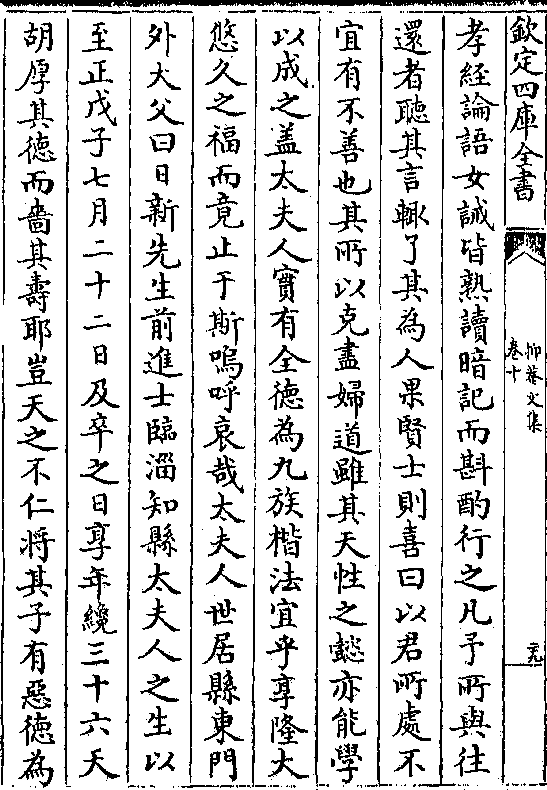 欽定四庫全書
抑菴文集
卷十
孝經論語女誡皆熟讀暗記而斟酌行之凡予所與往
還者聽其言輙了其為人果賢士則喜曰以君所處不
宜有不善也其所以克盡婦道雖其天性之懿亦能學
以成之盖太夫人實有全德為九族楷法宜乎享隆大
悠久之福而竟止于斯嗚呼哀哉太夫人世居縣東門
外大父曰日新先生前進士臨淄知縣太夫人之生以
至正戊子七月二十二日及卒之日享年纔三十六天
胡厚其德而嗇其壽耶豈天之不仁将其子有惡德為